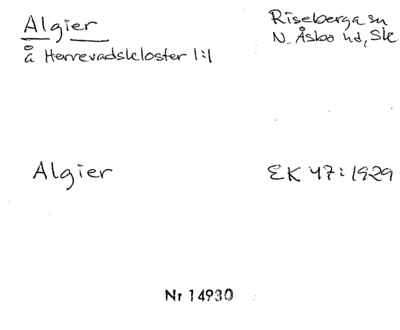 Algier
å Herrevadskloster 1:1
Riseberga sn
N. Åsbo hd, Sk
Algier
EK 47:1929
Nr 14930